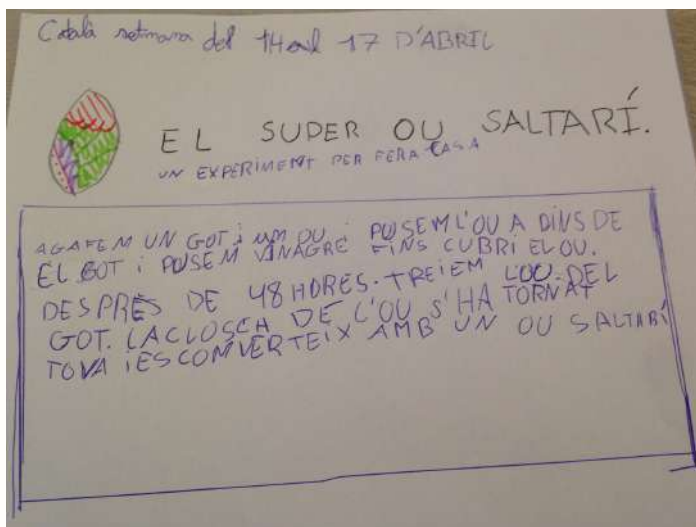 Català setmana del 14 al 17 D'ABRIL
EL SUPER OU SALTARÍ.
UN EXPERIMENT PER FER A CASA
AGAFEM UN GOT i UN OU i POSEM L'OU A DINS DE
EL GOT i POSEM VINAGRE FINS CUBRI EL OU.
DESPRÉS DE 48 HORES. TREIEM L'OU DEL
GOT. LA CLOSCA DE L'OU S'HA TORNAT
TOVA i ES CONVERTEIX AMB UN OU SALTARÍ